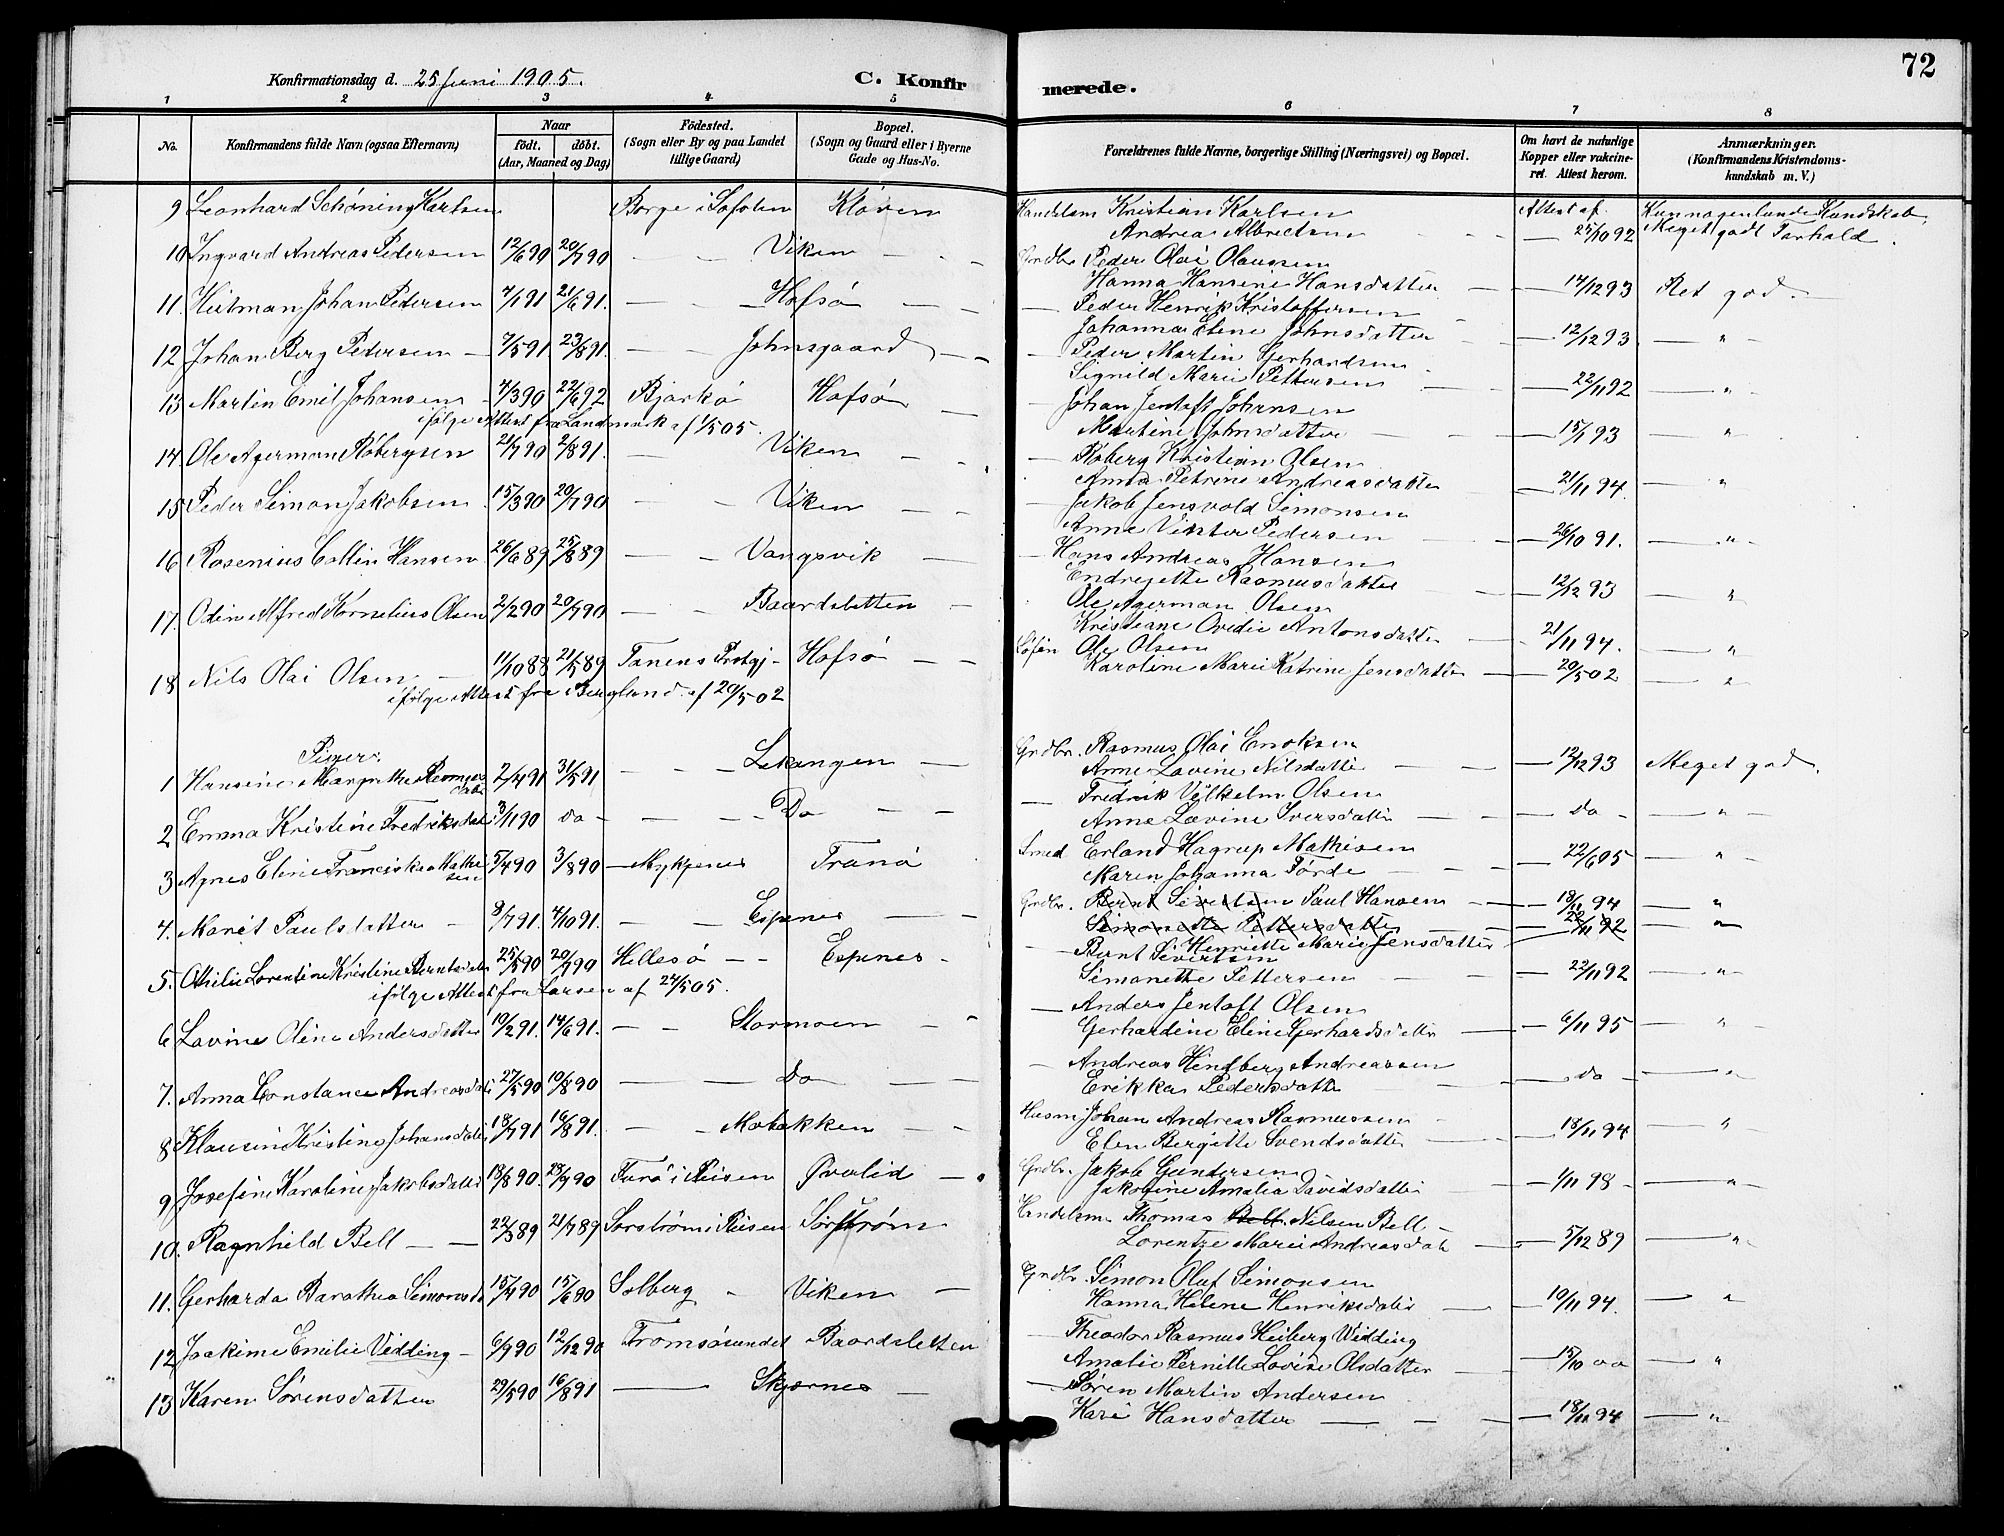 72
Konfirmationsdag d. 25 Juni 1905.
C. Konfirmerede.
1 2 3 4 5 6 7 8
No.
Konfirmandens fulde Navn (ogsaa Efternavn)
Naar
födt. döbt.
(Aar, Maaned og Dag)
Födested.
(Sogn eller By og paa Landet
tillige Gaard)
Bopæl.
(Sogn og Gaard eller i Byerne
Gade og Hus-No.
Forældrenes fulde Navne, borgerlige Stilling (Næringsvei) og Bopæl.
Om havt de naturlige
Kopper eller vakcineret. Attest herom.
Anmærkninger.
(Konfirmandens Kristendomskundskab m. V.)
9 Leonhard Schøning Karlsen Borge i Lofoten Kløven Handelsm Kristian Karlsen Attest af Kun nogenlunde Kundskab
Andrea Albrektsen — 25/10 92 Meget godt Forhold.
10 Ingvard Andreas Pedersen 12/6 90 20/7 90 — — Viken — Grdbr. Peder Olai Olaussen
Hanna Hansine Hansdatter — 14/12 93 Ret god. —
11. Heitman Johan Pedersen 4/1 91 21/6 91. — — Hofsø — — Peder Henrik Kristoffersen
Johanna Eline Johnsdatter — 12/12 93 — "
12 Johan Berg Pedersen — 7/5 91 23/8 91. — — Johnsgaard — — Peder Martin Gerhardsen
Signild Marie Pettersen — 22/11 92 — "
13 Martin Emil Johansen 4/3 90 22/6 92 Bjarkø Hofsø — — Johan Jentoft Johansen
ifølge Attest fra Landmark af 1/5 05.
Martine Johnsdatter — 15/1 93 — "
14 Ole Agerman Robergsen 21/7 90 2/8 91. — Viken — — Roberg Kristian Olsen
Anna Petrine Andreasdatter — 21/11 94. — "
15 Peder Simon Jakobsen 15/3 90 20/7 90 — — Viken — — Jakob Jensvold Simonsen
Anne Pedersen — 26/10 91. — "
16 Rosenius Collin Hansen 26/6 89 25/8 89 — — Vangsvik — — Hans Andreas Hansen
Endregette Rasmusdatter — 12/12 93 — "
17. Odin Alfred Kornelius Olsen 2/2 90 20/7 90 — — Baardsletten — Ole Agerman Olsen
Kristiane Ovedie Antonsdatter — 21/11 94. — "
18 Nils Olai Olsen — 11/10 88 21/5 89 Tanens Prstgj — Hofsø — — Ole Olsen
Karoline Marie Katrine Jensdatter — 20/5 02 — "
ifølge Attest fra Bergland af 20/5 02
Piger.
1 Hansine Margrethe Rasmusdatter 2/4 91 31/5 91 — — — Lekangen — Grdbr. Rasmus Olai Enoksen
Anne Lovine Nilsdatter — 12/12 93 Meget god.
2 Emma Kristine Fredriksdatt. 3/11 90 do — — — — Do — — — Fredrik Vilhelm Olsen
Anna Lovine Iversdatter — Do — — "
3 Agnes Eline Franciska Mathisen 5/4 90 3/8 90 — Mykjenes Tranø Smed Erland Hagrup Mathisen
Maren Johanna Førde — 22/6 05 — "
4. Maret Paulsdatter — 8/7 91. 4/10 91. — — Espenes — Grdbr. Bernt Sivertsen Paul Hansen — 18/11 94 — "
Simonette Pettersdatter — 22/11 92 — "
Henriette Marie Jensdatter
5. Othilie Lorentine Kristine Berntsdatter 25/5 90 20/7 90 Hillesø — — Espenes — — Bernt Sivertsen
Simonette Pettersen — 22/11 92 — "
ifølge Attest fra Larsen af 24/5 05.
6 Lovine Oline Andersdatter 10/2 91. 14/6 91. — — Stormoen — — Anders Jentoft Olsen
Gerhardine Eline Gerhardsdatter — 6/11 95 — "
7. Anna Constance Andreasdatt 27/5 90 10/8 90 — — Do — — Andreas Hindberg Andreassen
Erikka Pedersdatter — do — — "
8 Klausine Kristine Johansdatter 18/7 91 16/8 91. — — Mobakken — Husm. Johan Andreas Rasmussen
Elen Bergitte Svendsdatter — 18/11 94 — "
9 Josefine Karoline Jakobsdatter 18/8 90. 28/9 90 i Reisen Grdbr. Jakob Gundersen
Jakobine Amalia Davidsdatter — 1/11 98 — — "
10. Ragnhild Bell — — 22/3 89 21/7 89 Sørstrøm i Reisen Sørstrøm Handelsm. Thomas Bell Nilsen Bell —
Lorentze Marie Andreasdat — 5/12 89 — "
11. Gerharda Barathea Simonsd. 15/4 90 15/6 90 Solberg — Viken — Grdbr. Simon Oluf Simonsen
Hanna Helene Henriksdatter — 10/11 94. — "
12 Joakime Emilie Vidding — 6/9 90 12/12 90 Tromsøsundet Baardsletten — Theodor Rasmus Heiberg Widding
Amalie Pernille Lovise Olsdatter — 15/10 00 — "
13 Karen Sørensdatter 29/5 90 16/8 91 — — Skjærnes — — Søren Martin Andersen
Kari Hansdatter — — 18/11 94 — "